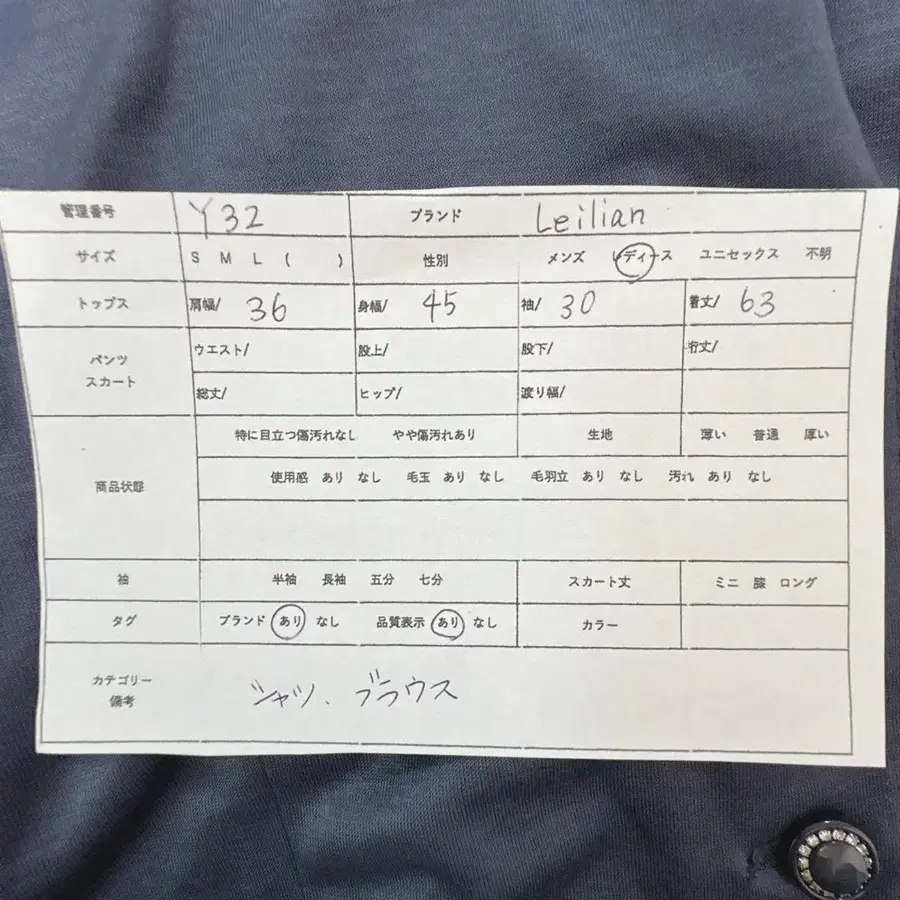 管理番号 Y32 ブランド Leilian
サイズ S M L ( ) 性別 メンズ レディース ユニセックス 不明
トップス 肩幅/ 36 身幅/ 45 袖/ 30 着丈/ 63
パンツ スカート ウエスト/ 股上/ 股下/ 裄丈/
総丈/ ヒップ/ 渡り幅/
商品状態 特に目立つ傷汚れなし やや傷汚れあり 生地 薄い 普通 厚い
使用感 あり なし 毛玉 あり なし 毛羽立 あり なし 汚れ あり なし
袖 半袖 長袖 五分 七分 スカート丈 ミニ 膝 ロング
タグ ブランド あり なし 品質表示 あり なし カラー
カテゴリー 備考 シャツ、ブラウス